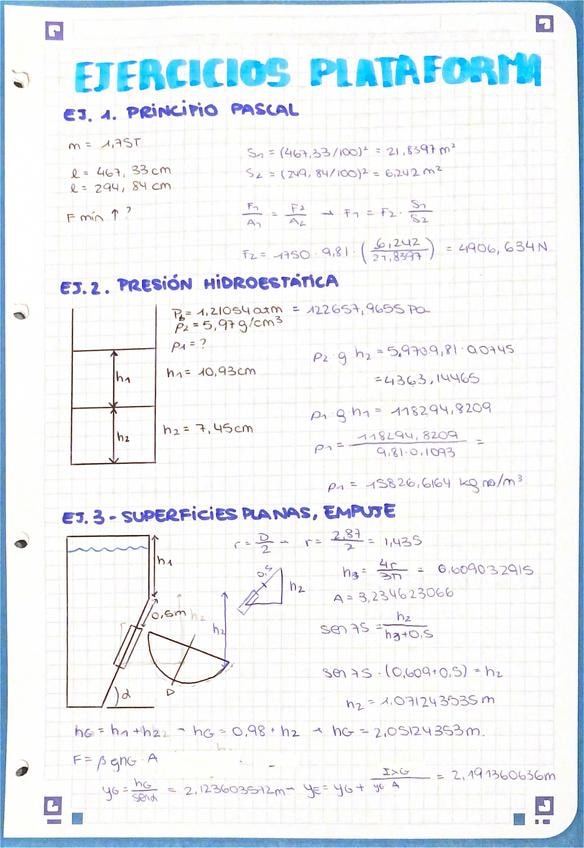 EJERCICIOS PLATAFORMA
EJ. 1. PRINCIPIO PASCAL
m = 1,75T
l = 467,33cm
l = 294,84cm
F min ↑ ?
S₁ = (467,33/100)² = 21,8397 m²
S₂ = (249,84/100)² = 6,242 m²
F₁/A₁ = F₂/A₂ → F₁ = F₂ · S₁/S₂
F₂ = 1750 · 9,81 · (6,242/21,8397) = 4906,634N
EJ. 2. PRESIÓN HIDROESTÁTICA
P_B = 1,21054atm = 122657,9655Pa
ρ₂ = 5,97g/cm³
ρ₁ = ?
h₁ = 10,93cm
h₂ = 7,45cm
h₁
h₂
ρ₂ g h₂ = 5,970·9,81·0,0745
= 4363,14465
ρ₁ g h₁ = 118294,8209
ρ₁ = 118294,8209 / 9,81·0,1093 =
ρ₁ = 15826,6164 kg/m³
EJ. 3 - SUPERFICIES PLANAS, EMPUJE
h₁
0,5m
α
D
h₂
h₂
0,5
h₂
r = D/2 → r = 2,87/2 = 1,435
h₃ = 4r/3π = 0,609032915
A = 3,234623066
sen 75 = h₂/h₃+0,5
sen 75 · (0,609+0,5) = h₂
h₂ = 1,071243535m
hG = h₁ + h₂ → hG = 0,98 + h₂ → hG = 2,05124353m.
F = ρ g hG · A
yG = hG/senα = 2,123603512m → yE = yG + IxG/yG A = 2,191360636m